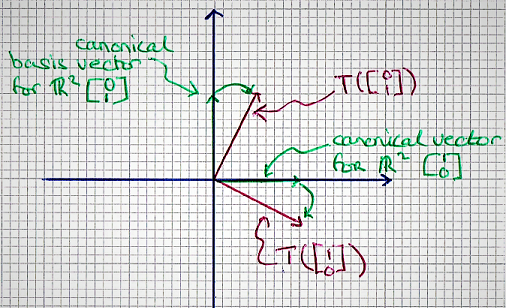 canonical
basis vector
for ℝ² [0 1]
T([0 1])
canonical vector
for ℝ² [1 0]
T([1 0])